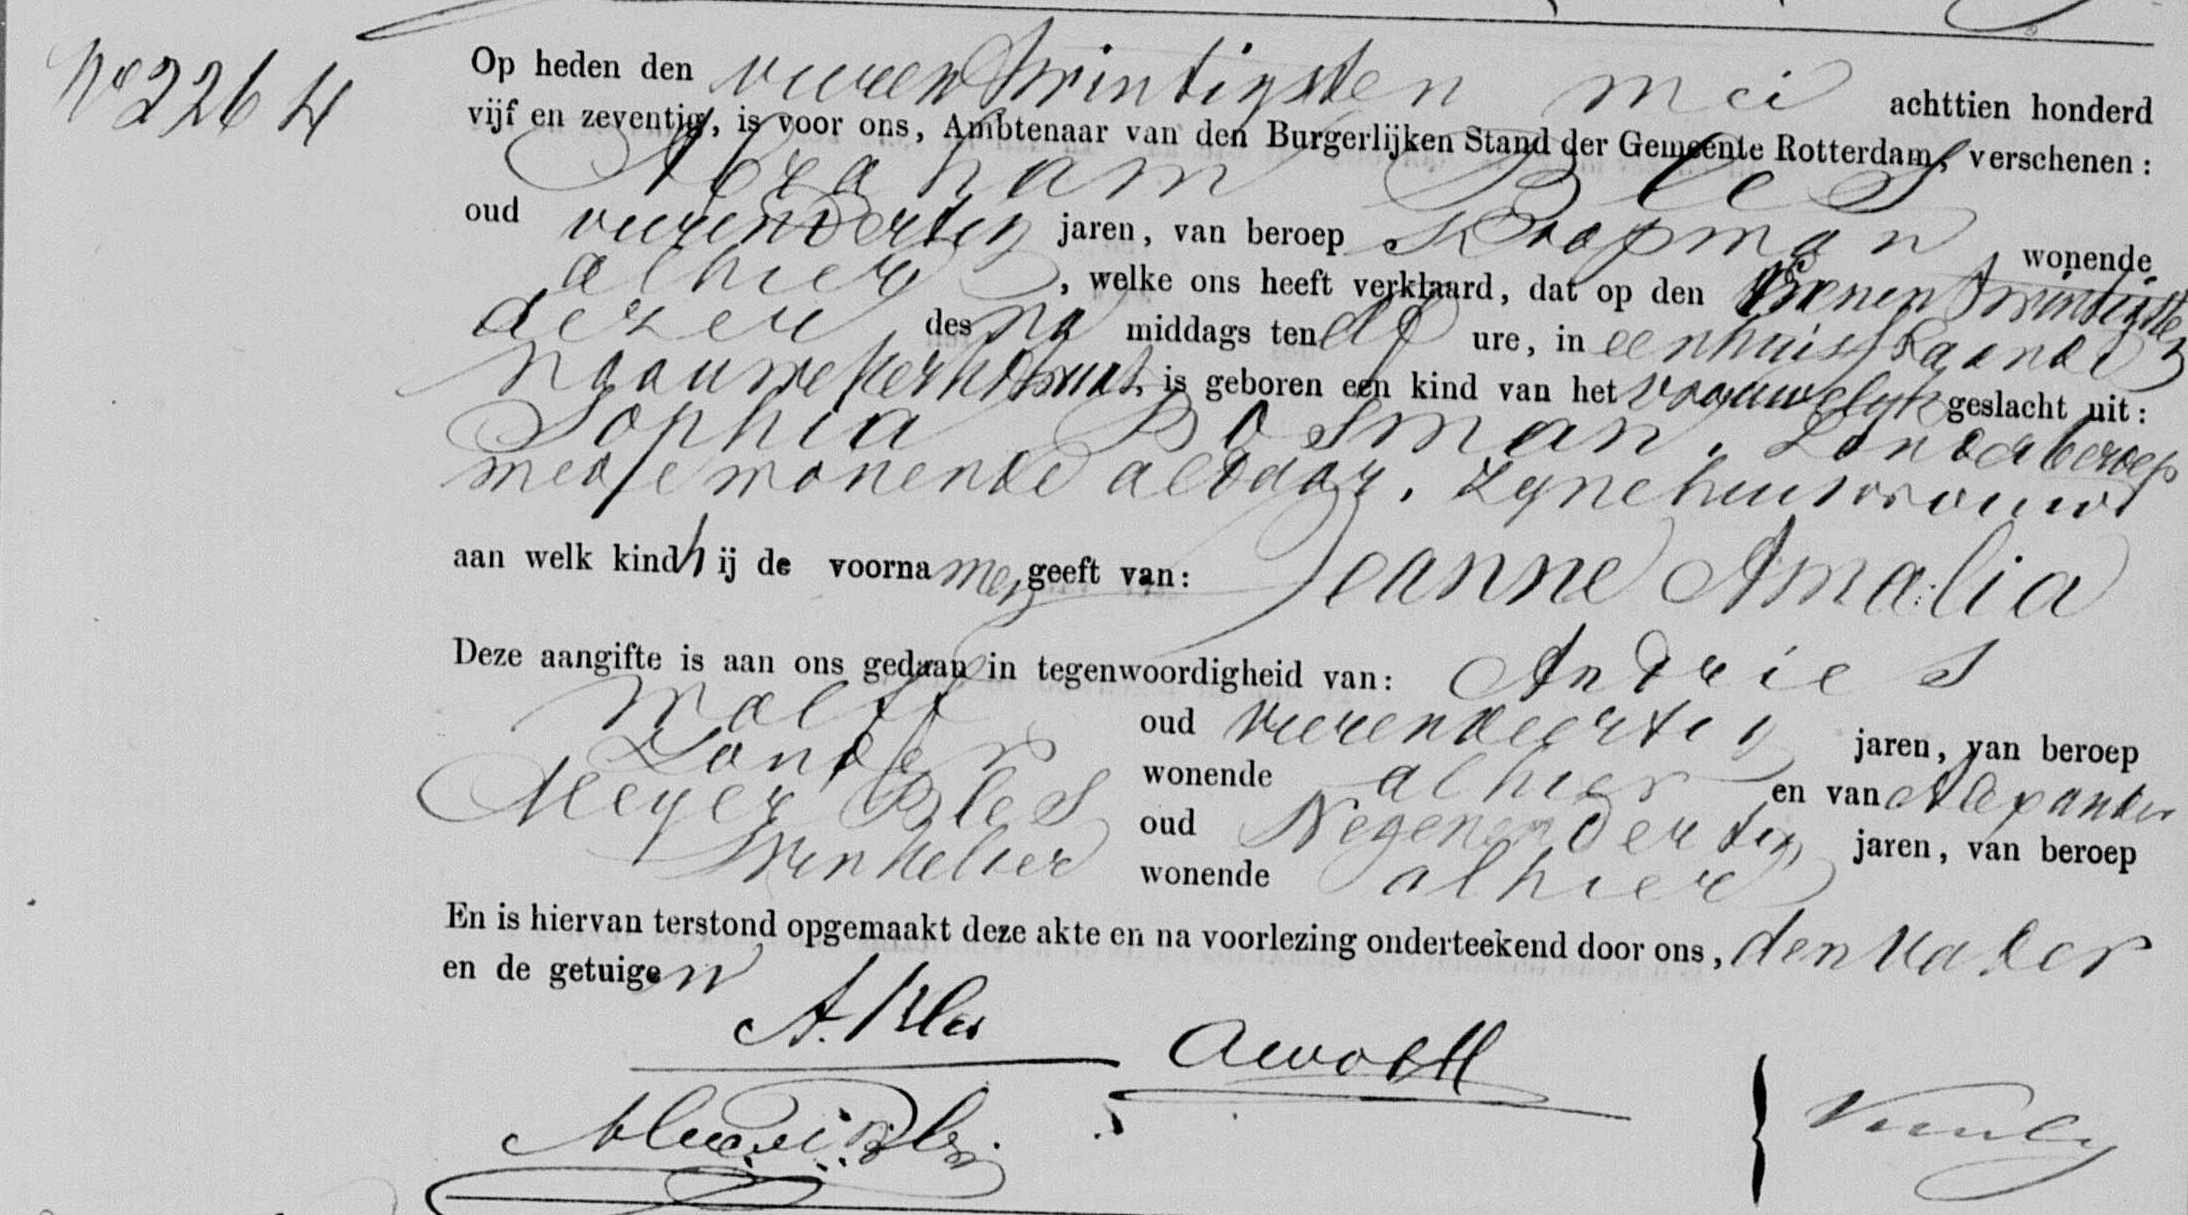 No 2264
Op heden den vierentwintigsten mei achttien honderd
vijf en zeventig, is voor ons, Ambtenaar van den Burgerlijken Stand der Gemeente Rotterdam, verschenen:
Abraham Bles
oud vierendertig jaren, van beroep Koopman wonende
alhier, welke ons heeft verklaard, dat op den eenentwintigsten
dezer des na middags ten elf ure, in een huis staande
Naauwe kerkstraat, is geboren een kind van het vrouwelijk geslacht uit:
Sophia Bosman, Zonder beroep
mede wonende aldaar, Zyne huisvrouw
aan welk kind hij de voornamen geeft van: Jeanne Amalia
Deze aangifte is aan ons gedaan in tegenwoordigheid van: Andries
Wolff oud vierendertig jaren, van beroep
Zonder wonende alhier en van Alexander
Meyer Bles oud Negenendertig jaren, van beroep
Winkelier wonende alhier
En is hiervan terstond opgemaakt deze akte en na voorlezing onderteekend door ons, den Vader
en de getuigen
A. Bles
A Wolff